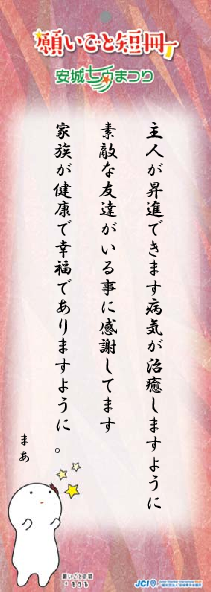 願いごと短冊
安城七夕まつり
主人が昇進できます病気が治癒しますように
素敵な友達がいる事に感謝してます
家族が健康で幸福でありますように。
まあ
願いごと短冊
JCI